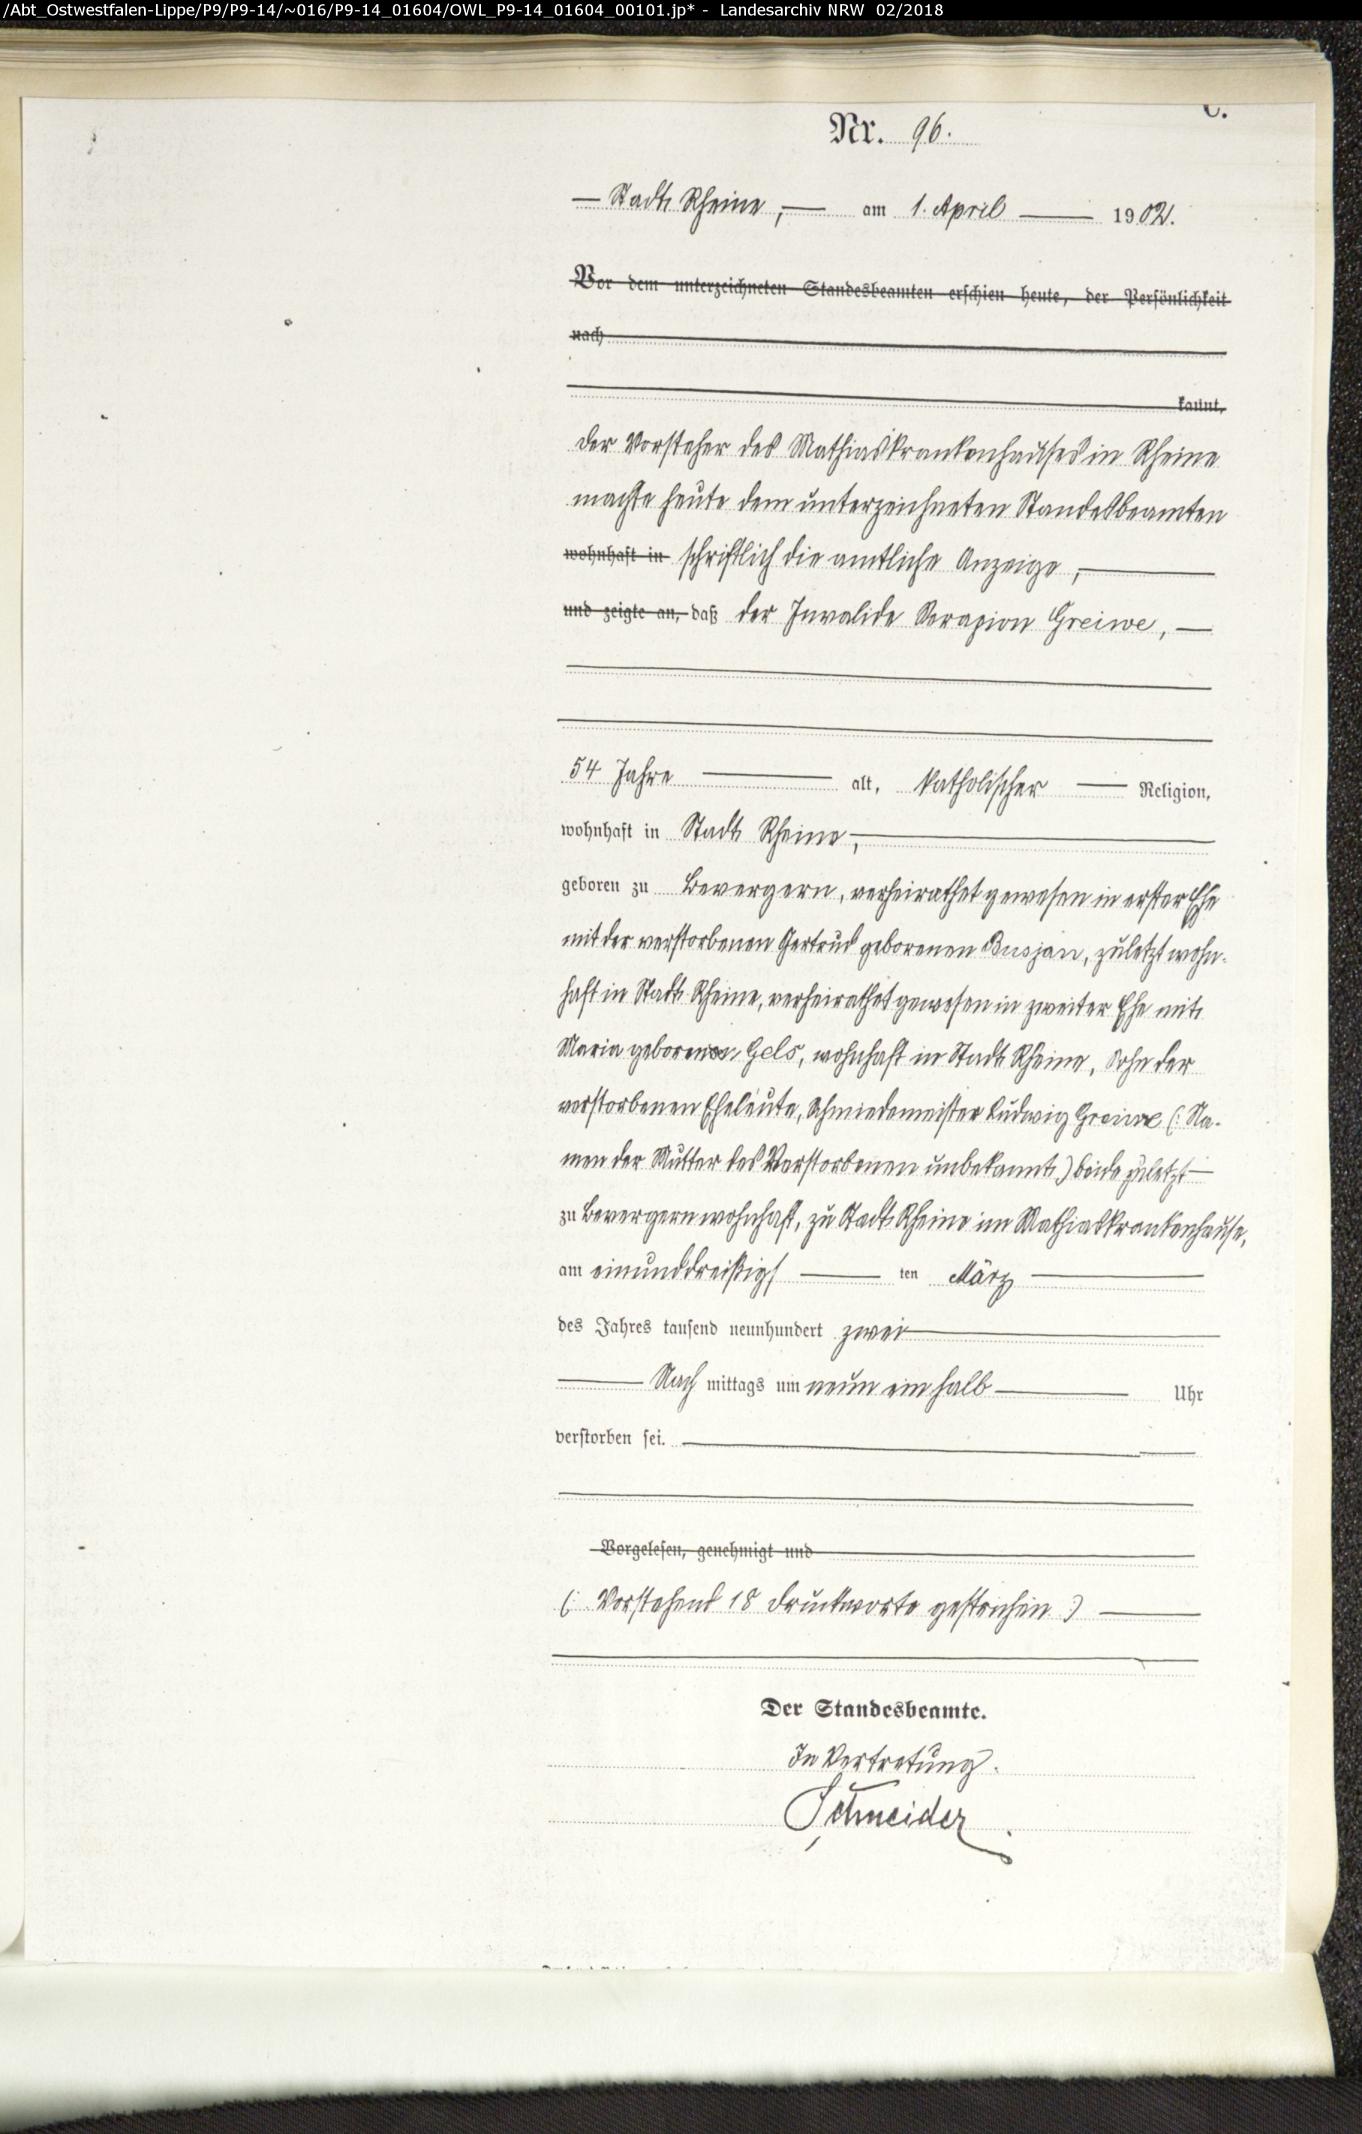 /Abt_Ostwestfalen-Lippe/P9/P9-14/~016/P9-14_01604/OWL_P9-14_01604_00101.jp* - Landesarchiv NRW 02/2018
C.
Nr. 96.
Stadt Rheine, am 1. April 1902.
Vor dem unterzeichneten Standesbeamten erschien heute, der Persönlichkeit
nach
kannt,
der Vorsteher des Mathiaskrankenhauses in Rheine
machte heute dem unterzeichneten Standesbeamten
wohnhaft in schriftlich die amtliche Anzeige,
und zeigte an, daß der Invalide Serapion Greiwe,
54 Jahre alt, katholischer Religion,
wohnhaft in Stadt Rheine,
geboren zu Bevergern, verheirathet gewesen in erster Ehe
mit der verstorbenen Gertrud geborenen Busjan, zuletzt wohn-
haft in Stadt Rheine, verheirathet gewesen in zweiter Ehe mit
Maria geborenen Gels, wohnhaft in Stadt Rheine, Sohn der
verstorbenen Eheleute, Schmiedemeister Ludwig Greiwe (: Na-
men der Mutter des Verstorbenen unbekannt :) beide zuletzt
zu Bevergern wohnhaft, zu Stadt Rheine im Mathiaskrankenhause,
am einunddreißigsten März
des Jahres tausend neunhundert zwei
Nach mittags um neun ein halb Uhr
verstorben sei.
Vorgelesen, genehmigt und
(: Vorstehend 18 Druckworte gestrichen :)
Der Standesbeamte.
In Vertretung.
Schneider